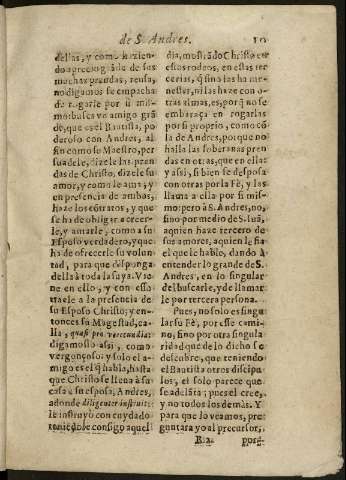 de S. Andres.
dellas, y como hazien-
do aprecio grãde de sus
muchas prendas, reusa,
no digamos se empacha
de rogarle por si mis-
mo: buscave vn amigo grã
de, que es el Bautista, po
deroso con Andres, al
fin como su Maestro, per
suadele, dizele las pren
das de Christo, dizele su
amor, y como le ama; y
en presencia de ambos,
haze los cõtratos, y que
se ha de obligar a creer-
le, y amarle, como a su
Esposo verdadero, y que
ha de ofrecerle su volun
tad, para que dispõnga
della à toda la suya. Vie
ne en ello, y con esso
traele a la presencia de
su Esposo Christo; y en-
tonces su Magestad, ca-
lla, quasi præ verecundia:
digamoslo assi, como
vergonçoso: y solo el a-
migo es el q̃ habla, hasta
que Christo se llena à su
casa à su esposa, Andres,
adonde diligenter instruit:
le instruyò con cuydado
teniẽdole consigo aquel
dia, mostrãdo Christo en
estos rodeos, en estas ter
cerias, q̃ sino las ha me-
nester, ni las haze con o-
tras almas, es, porq̃ no se
embaraça en rogarlas
por si proprio, como cõ
la de Andres, porque no
halla las soberanas pren
das en otras, que en ella:
y assi, si bien se desposa
con otras por la Fè, y las
llama a ella por si mis-
mo: pero à S. Andres, no,
sino por medio de S. Iuã,
a quien haze tercero de
sus amores, a quien le fia
el que le hable, dando à
entender lo grande de S.
Andres, en lo singular
del buscarle, y de llamar
le por tercera persona.
Pues, no solo es singu-
lar su Fè, por esse cami-
no, sino por otra singula-
ridad que de lo dicho se
descubre, que teniendo
el Bautista otros discipu
los, el solo parece que
se adelãta; pues el cree,
y no todos los demàs. Y
para que lo veamos, pre
guntara yo al precursor,
R 2
porq̃